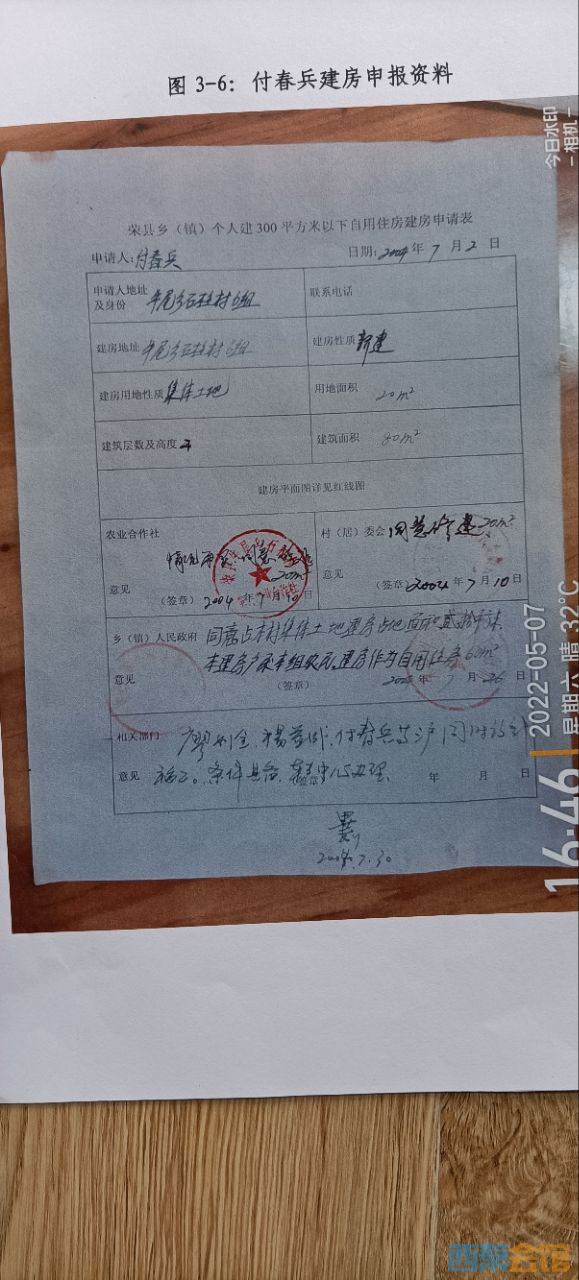 图 3-6：付春兵建房申报资料
今日水印
-相机-
荣县乡（镇）个人建300平方米以下自用住房建房申请表
申请人:付春兵 日期:2004年7月2日
申请人地址及身份 石柱村6组 联系电话
建房地址 石柱村6组 建房性质 新建
建房用地性质 集体土地 用地面积 20m²
建筑层数及高度 建筑面积 80m²
建房平面图详见红线图
农业合作社 村（居）委会 同意修建20m²
情况 同意 20m²
意见 意见
（签章）2004年7月10日 （签章）2004年7月10日
乡（镇）人民政府 同意占本村集体土地建房占地面积贰拾平米
本组农民,建房作为自用住房60m²
意见 （签章） 7月26日
相关部门 付春兵
意见 条件具备 办理 年 月 日
2004.7.30
2022-05-07
星期六 晴 32°C
16:46
西秦会馆